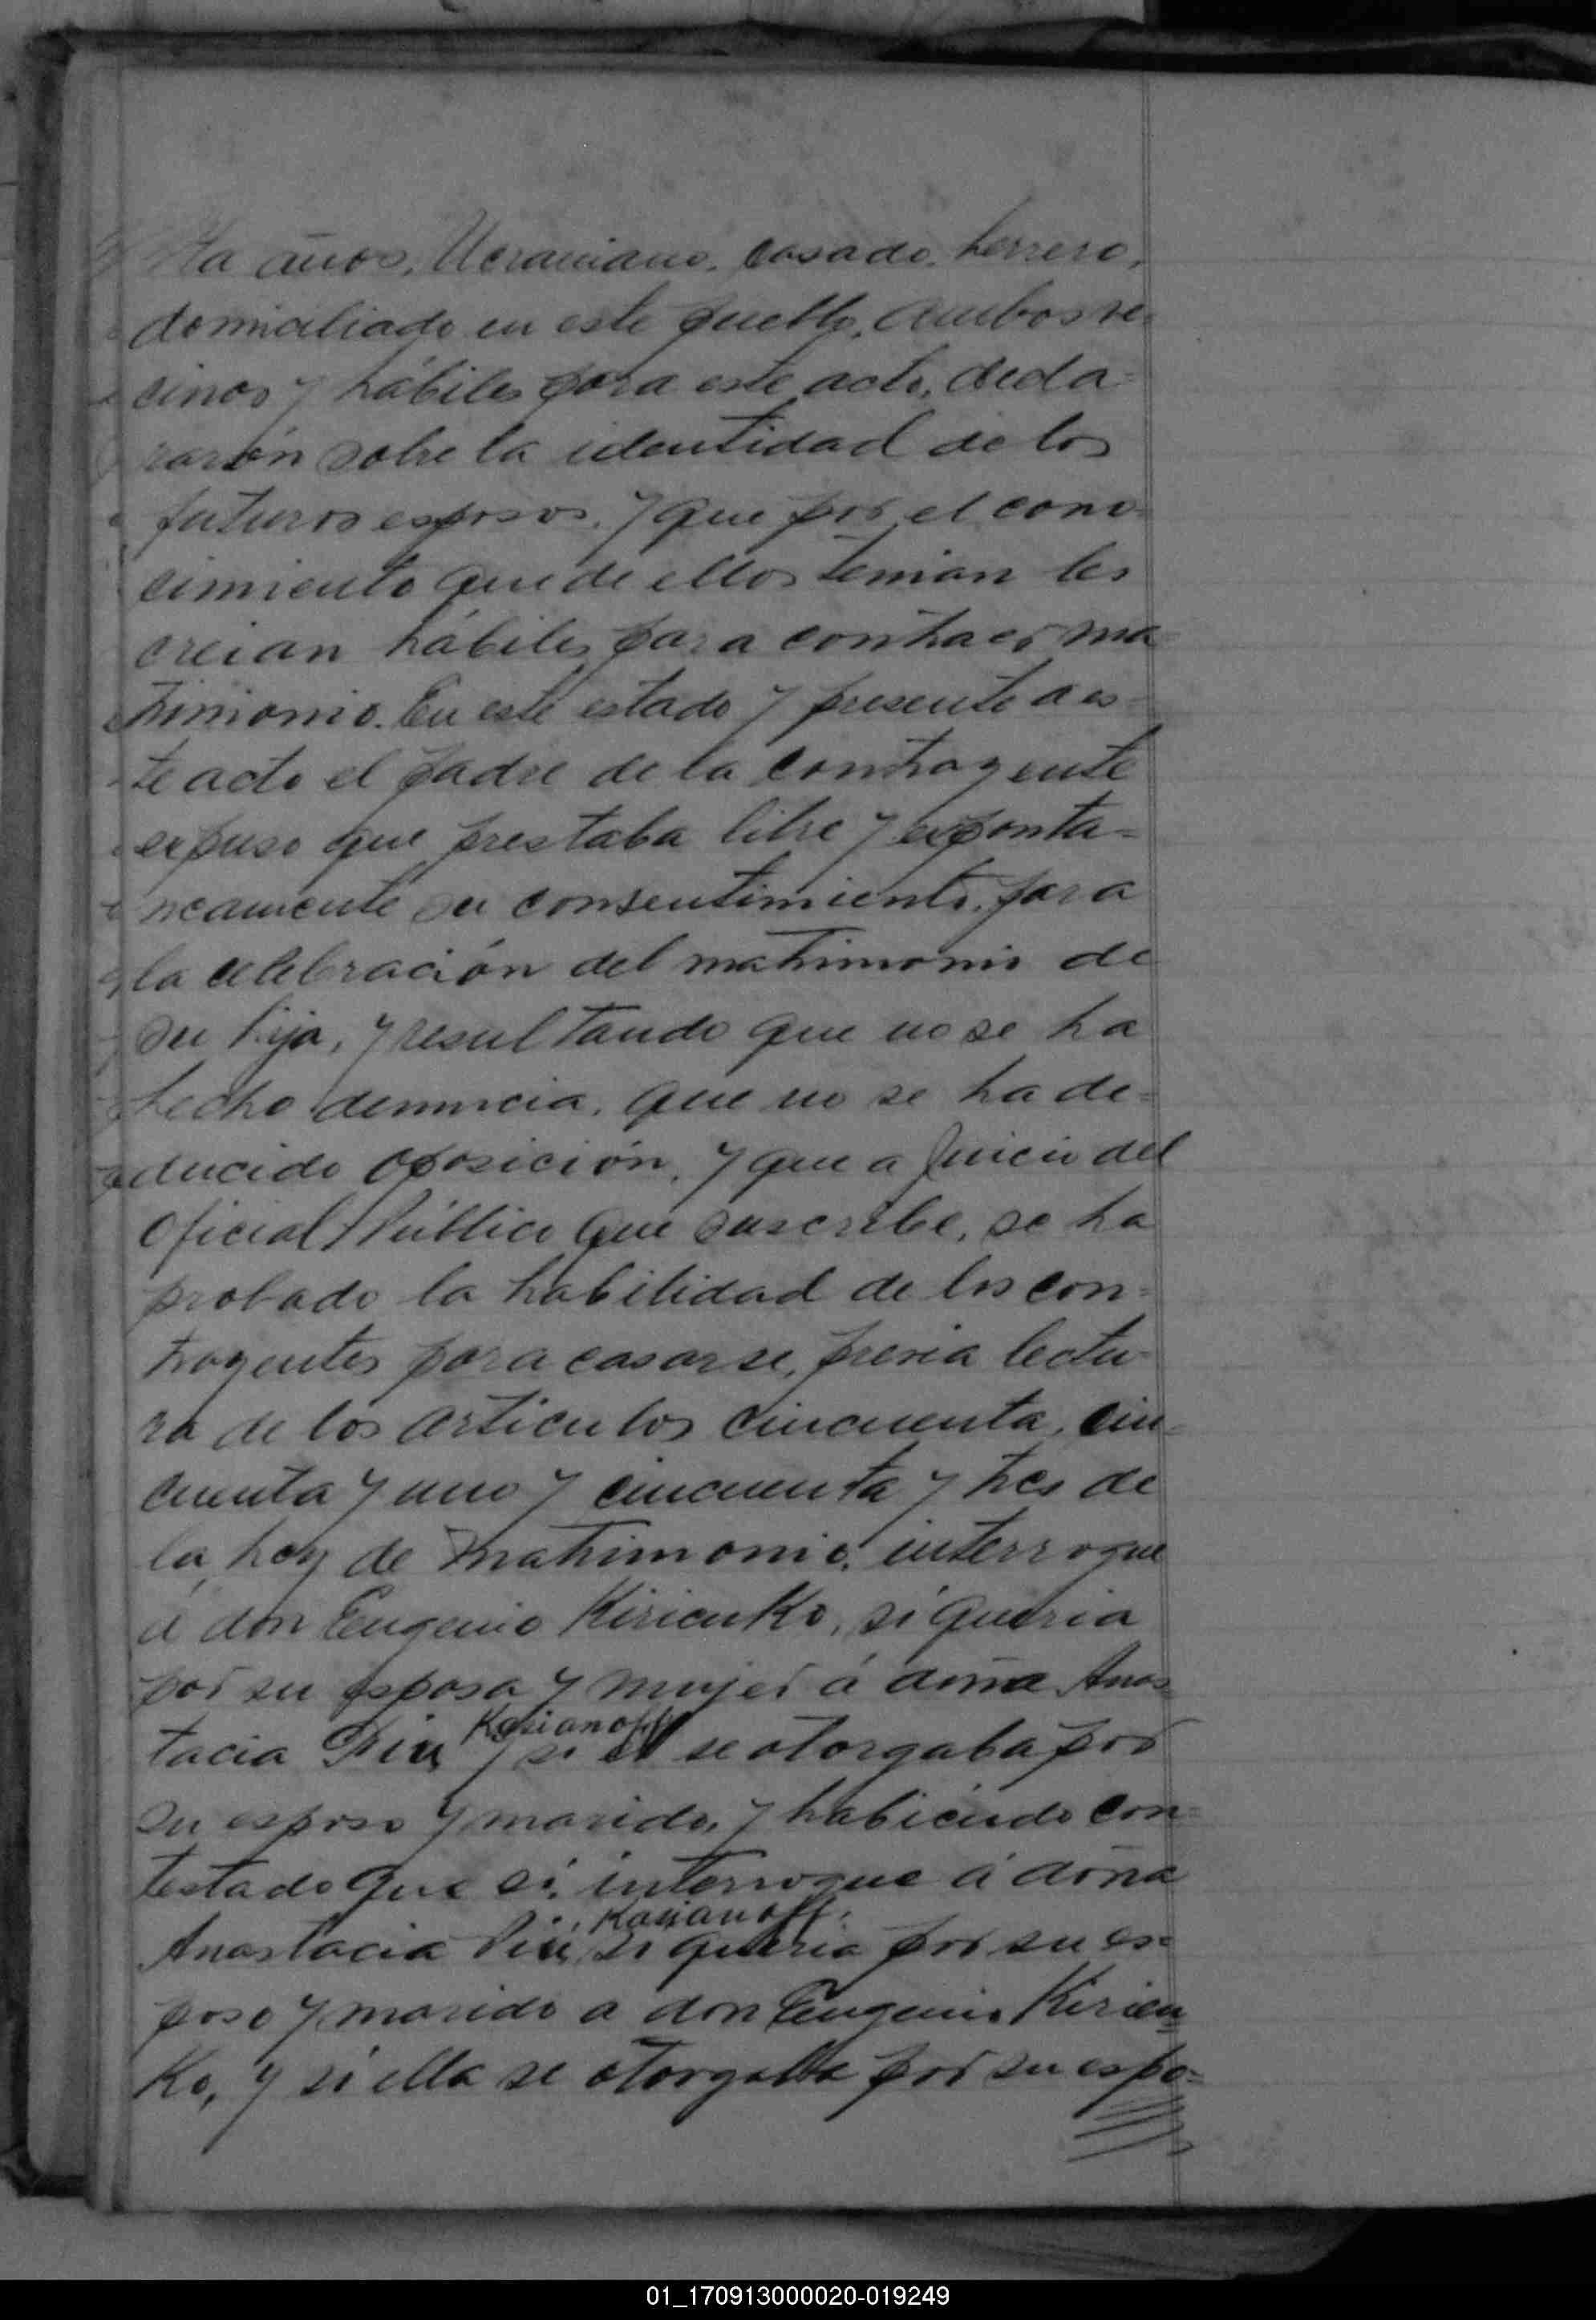 ta años, Ucraniano, casado, herrero,
domiciliado en este pueblo, ambos ve-
cinos y hábiles para este acto, decla-
raron sobre la identidad de los
futuros esposos, y que por el cono-
cimiento que de ellos tenian les
creian hábiles para contraer ma-
trimonio. En este estado y presente a es-
te acto el padre de la contrayente
expuso que prestaba libre y esponta-
neamente su consentimiento para
la celebración del matrimonio de
su hija, y resultando que no se ha
hecho denuncia, que no se ha de-
ducido oposición, y que a juicio del
Oficial Público que suscribe, se ha
probado la habilidad de los con-
trayentes para casarse, previa lectu-
ra de los articulos cincuenta, cin-
cuenta y uno y cincuenta y tres de
la Ley de matrimonio, interrogue
á don Eugenio Kirienko, si queria
por su esposa y mujer á doña Anas-
Kasianoff
tacia y si el se otorgaba por
su esposo y marido, y habiendo con-
testado que si, interrogue á doña
Kasianoff,
Anastacia si queria por su es-
poso y marido a don Eugenio Kirien-
Ko, y si ella se otorgaba por su espo-
01_170913000020-019249